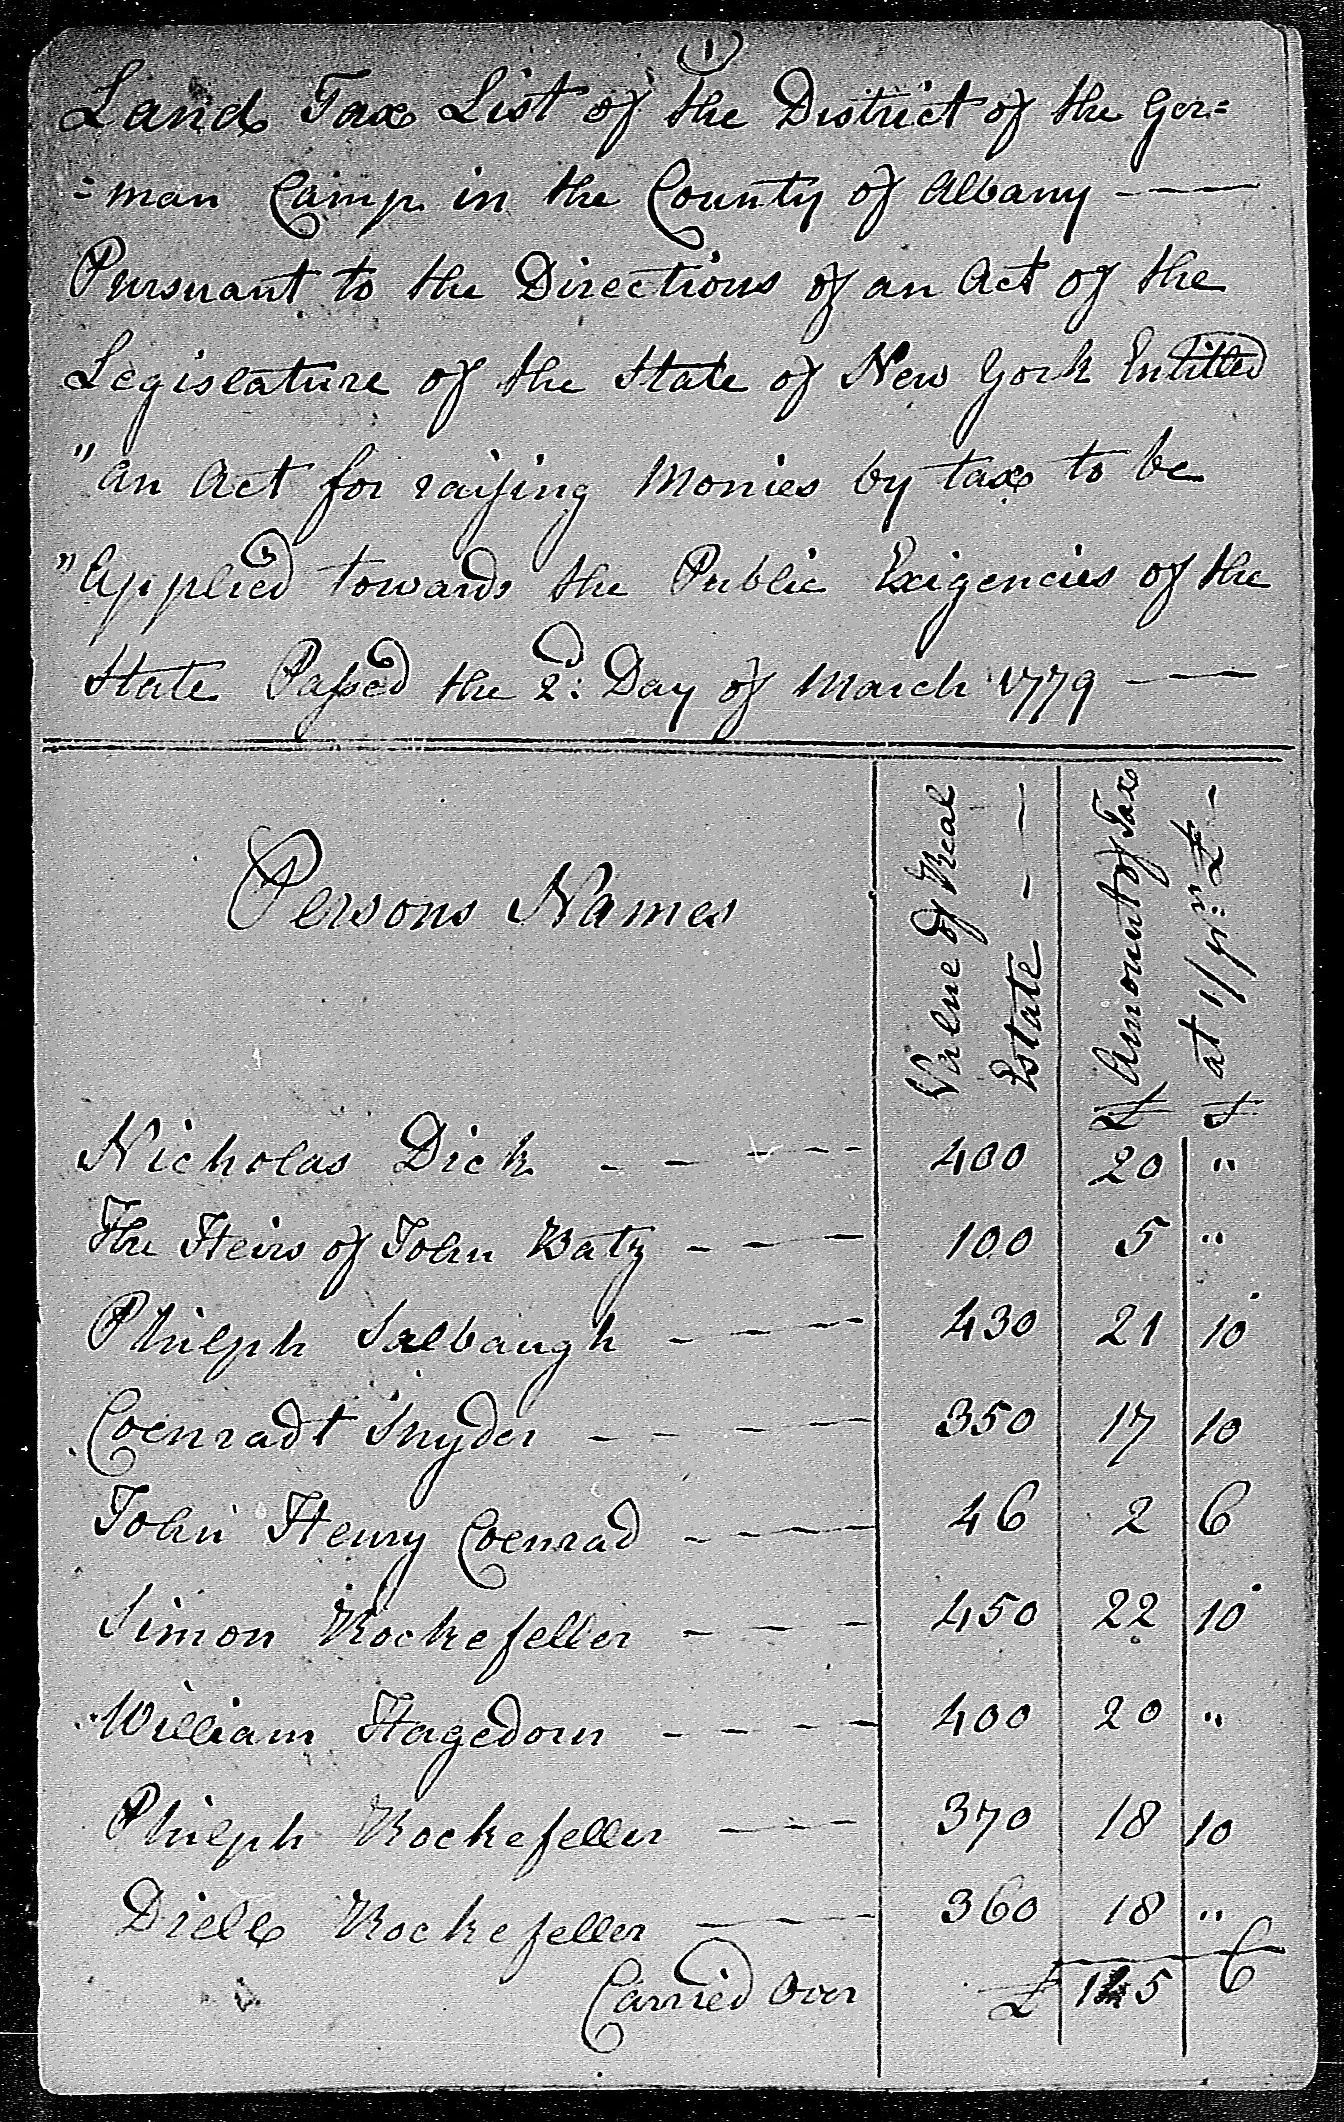 1
Land Tax List of the District of the Ger=
=man Camp in the County of Albany —
Pursuant to the Directions of an Act of the
Legislature of the State of New York Entitled
"an Act for raising Monies by tax to be
"Applied towards the Public Exigencies of the
State Passed the 2d: Day of March 1779 —
Persons Names
Value of Real
Estate - —
Amount of Tax
at 1/ pr: £ -
£ S
Nicholas Dick - - - - - 400 20 "
The Heirs of John Batz - - - - 100 5 "
Philiph Salbaugh - - - - 430 21 10
Coenradt Snyder - - - - 350 17 10
John Henry Coenrad - - - - 46 2 6
Simon Rockefeller - - - 450 22 10
William Hagedorn - - - - 400 20 "
Philiph Rockefeller - - - 370 18 10
Diell Rockefeller - - - 360 18 "
Carried Over £ 145 6